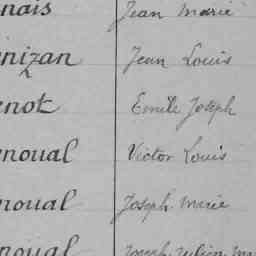 nais Jean Marie
nizan Jean Louis
enot Emile Joseph
noual Victor Louis
noual Joseph Marie
noual Joseph Julien Ma